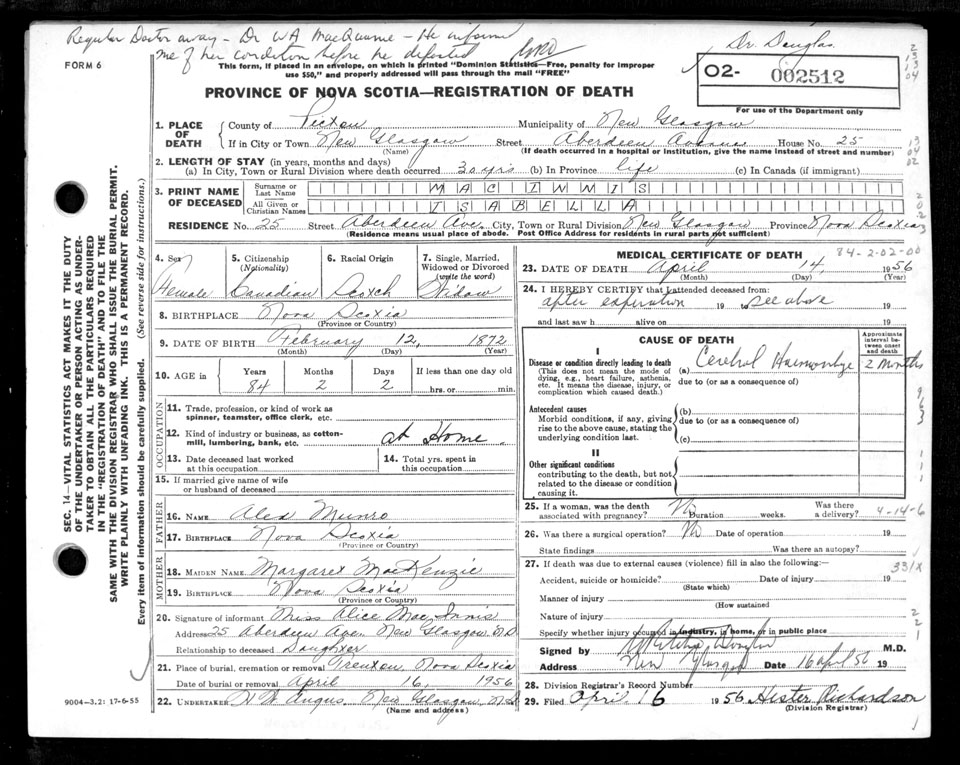 Regular Doctor away - Dr WA MacQuarrie - He inform
me of her condition before he departed
Dr. Douglas
FORM 6
This form, if placed in an envelope, on which is printed "Dominion Statistics—Free, penalty for improper
use $50," and properly addressed will pass through the mail "FREE"
O2- 002512
For use of the Department only
PROVINCE OF NOVA SCOTIA—REGISTRATION OF DEATH
SEC. 14—VITAL STATISTICS ACT MAKES IT THE DUTY
OF THE UNDERTAKER OR PERSON ACTING AS UNDER-
TAKER TO OBTAIN ALL THE PARTICULARS REQUIRED
IN THE "REGISTRATION OF DEATH" AND TO FILE THE
SAME WITH THE DIVISION REGISTRAR WHO SHALL ISSUE THE BURIAL PERMIT.
WRITE PLAINLY WITH UNFADING INK. THIS IS A PERMANENT RECORD.
Every item of information should be carefully supplied. (See reverse side for instructions.)
1. PLACE OF DEATH County of Pictou Municipality of New Glasgow
If in City or Town New Glasgow Street Aberdeen Avenue House No. 25
(Name) (If death occurred in a hospital or institution, give the name instead of street and number)
2. LENGTH OF STAY (in years, months and days)
(a) In City, Town or Rural Division where death occurred 30 yrs (b) In Province life (c) In Canada (if immigrant)
3. PRINT NAME OF DECEASED Surname or Last Name MAC INNIS
All Given or Christian Names ISABELLA
RESIDENCE No. 25 Street Aberdeen Ave. City, Town or Rural Division New Glasgow Province Nova Scotia
(Residence means usual place of abode. Post Office Address for residents in rural parts not sufficient)
4. Sex 5. Citizenship (Nationality) 6. Racial Origin 7. Single, Married, Widowed or Divorced (write the word)
Female Canadian Scotch Widow
8. BIRTHPLACE Nova Scotia
(Province or Country)
9. DATE OF BIRTH February 12, 1872
(Month) (Day) (Year)
10. AGE IN Years Months Days If less than one day old
84 2 2 hrs. or min.
OCCUPATION
11. Trade, profession, or kind of work as
spinner, teamster, office clerk, etc.
12. Kind of industry or business, as cotton-
mill, lumbering, bank, etc. at Home.
13. Date deceased last worked
at this occupation
14. Total yrs. spent in
this occupation
15. If married give name of wife
or husband of deceased
FATHER
16. NAME Alex Munro
17. BIRTHPLACE Nova Scotia
(Province or Country)
MOTHER
18. MAIDEN NAME Margaret MacKenzie
19. BIRTHPLACE Nova Scotia
(Province or Country)
20. Signature of informant Miss Alice MacInnis
Address 25 Aberdeen Ave. New Glasgow, N.S.
Relationship to deceased Daughter
21. Place of burial, cremation or removal Trenton, Nova Scotia
Date of burial or removal April 16, 1956
22. UNDERTAKER H W Angus. New Glasgow, N.S.
(Name and address)
9004—3.2: 17-6-55
MEDICAL CERTIFICATE OF DEATH 84-2-02-00
23. DATE OF DEATH April 14, 1956
(Month) (Day) (Year)
24. I HEREBY CERTIFY that I attended deceased from:
after expiration 19 to see above 19
and last saw h alive on 19
CAUSE OF DEATH
Approximate interval between onset and death
I
Disease or condition directly leading to death
(This does not mean the mode of
dying, e.g., heart failure, asthenia,
etc. It means the disease, injury, or
complication which caused death.)
(a) Cerebral Haemorrhage 2 Months
due to (or as a consequence of)
Antecedent causes
Morbid conditions, if any, giving
rise to the above cause, stating the
underlying condition last.
(b)
due to (or as a consequence of)
(c)
II
Other significant conditions
contributing to the death, but not
related to the disease or condition
causing it.
25. If a woman, was the death
associated with pregnancy? No Duration weeks. Was there
a delivery? 4-14-6
26. Was there a surgical operation? No Date of operation 19
State findings Was there an autopsy?
27. If death was due to external causes (violence) fill in also the following:— 331X
Accident, suicide or homicide? Date of injury 19
(State which)
Manner of injury
(How sustained)
Nature of injury
Specify whether injury occurred in industry, in home, or in public place
Signed by Douglas M.D.
Address New Glasgow Date 16 April 56 19
28. Division Registrar's Record Number
29. Filed April 16 1956 Hester Richardson
(Division Registrar)